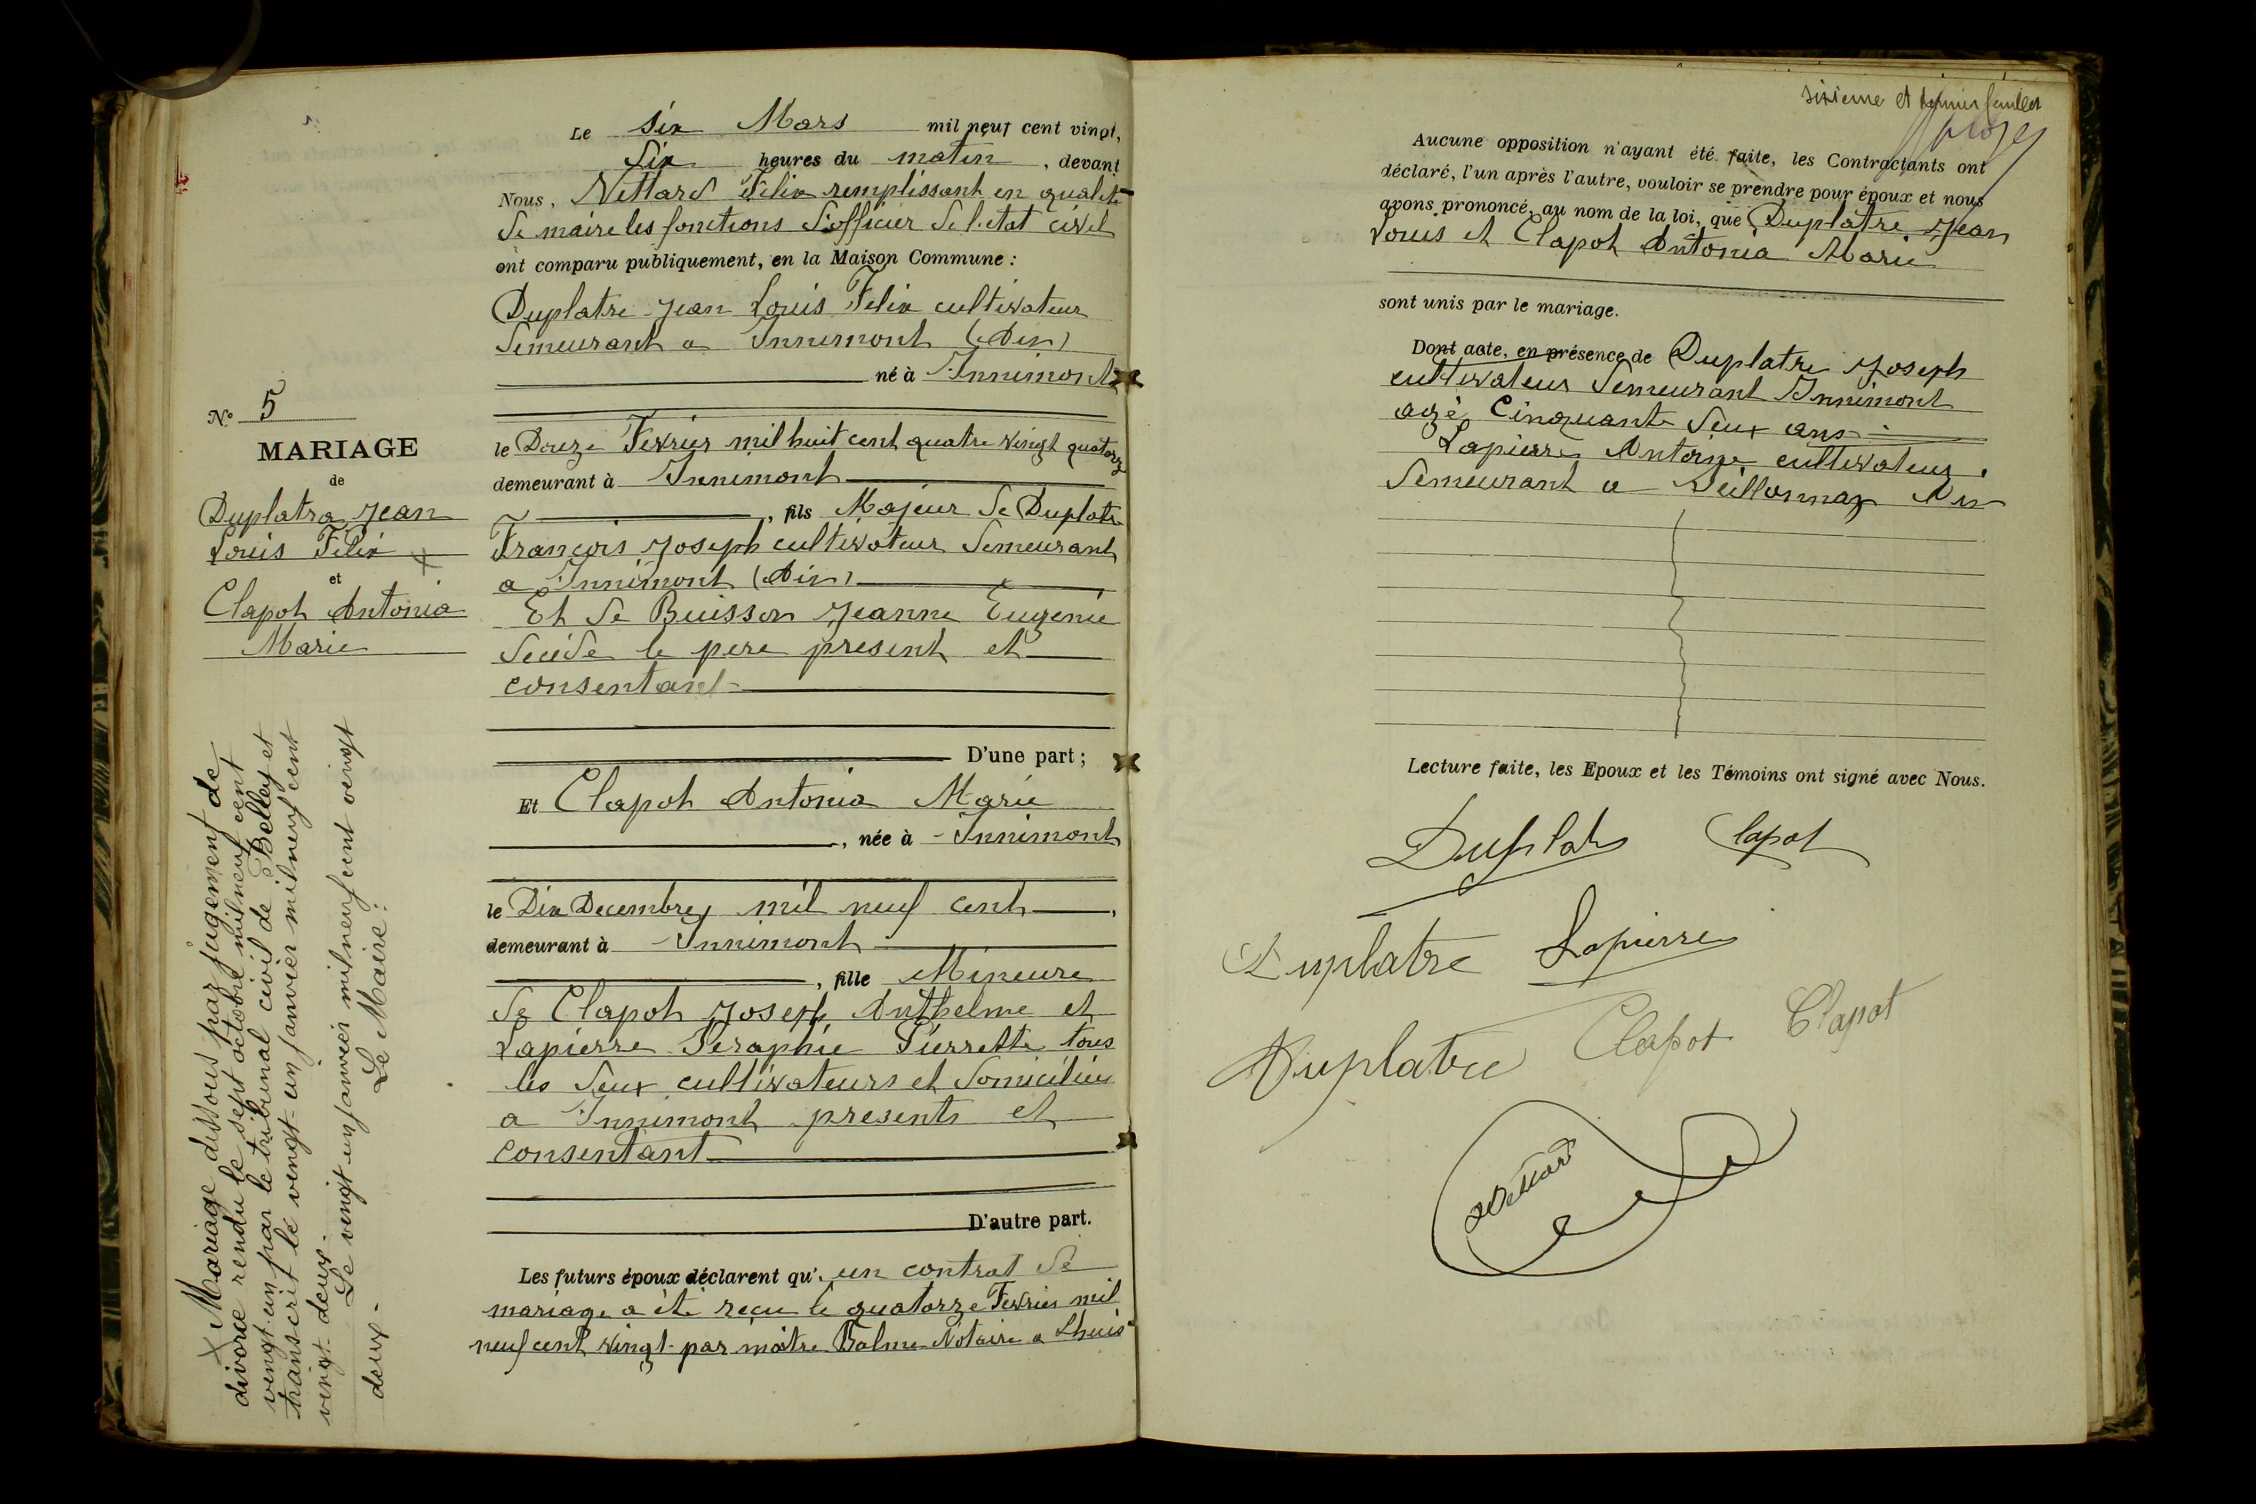 Le six Mars mil neuf cent vingt,
six heures du matin, devant
Nous, Vettard Félix remplissant en qualité
de maire les fonctions d'officier de l'etat civil
ont comparu publiquement, en la Maison Commune :
Duplatre Jean Louis Felix cultivateur
demeurant a Innimont (Ain)
né à Innimont
le Douze Fevrier mil huit cent quatre vingt quatorze
demeurant à Innimont
, fils Majeur de Duplatre
François Joseph cultivateur demeurant
a Innimont (Ain)
Et de Buisson Jeanne Eugenie
décédé le pere present et
consentant
D'une part ;
Et Clapot Antonia Marie
, née à Innimont
le Dix Decembre mil neuf cent,
demeurant à Innimont
, fille Mineure
de Clapot Joseph Anthelme et
Lapierre Séraphie Pierrette tous
les deux cultivateurs et domiciliés
a Innimont presents et
consentant
D'autre part.
Les futurs époux déclarent qu'un contrat de
mariage a été reçu le quatorze Fevrier mil
neuf cent vingt par maitre Balme Notaire a Lhuis
No 5
MARIAGE
de
Duplatre Jean
Louis Félix X
et
Clapot Antonia
Marie
X Mariage dissous par jugement de
divorce rendu le sept octobre mil neuf cent
vingt-un par le tribunal civil de Belley et
transcrit le vingt-un janvier mil neuf cent
vingt-deux.
Le vingt-un janvier mil neuf cent vingt
deux. Le Maire :
sixieme et dernier feuillet
Aucune opposition n'ayant été faite, les Contractants ont
déclaré, l'un après l'autre, vouloir se prendre pour époux et nous
avons prononcé, au nom de la loi, que Duplatre Jean
Louis et Clapot Antonia Marie
sont unis par le mariage.
Dont acte, en présence de Duplatre Joseph
cultivateur demeurant Innimont
agé Cinquante deux ans
Lapierre Antoine cultivateur
demeurant a Seillonnaz Ain
Lecture faite, les Epoux et les Témoins ont signé avec Nous.
Duplatre Clapot
Duplatre Lapierre
Duplatre Clapot Clapot
Vettard